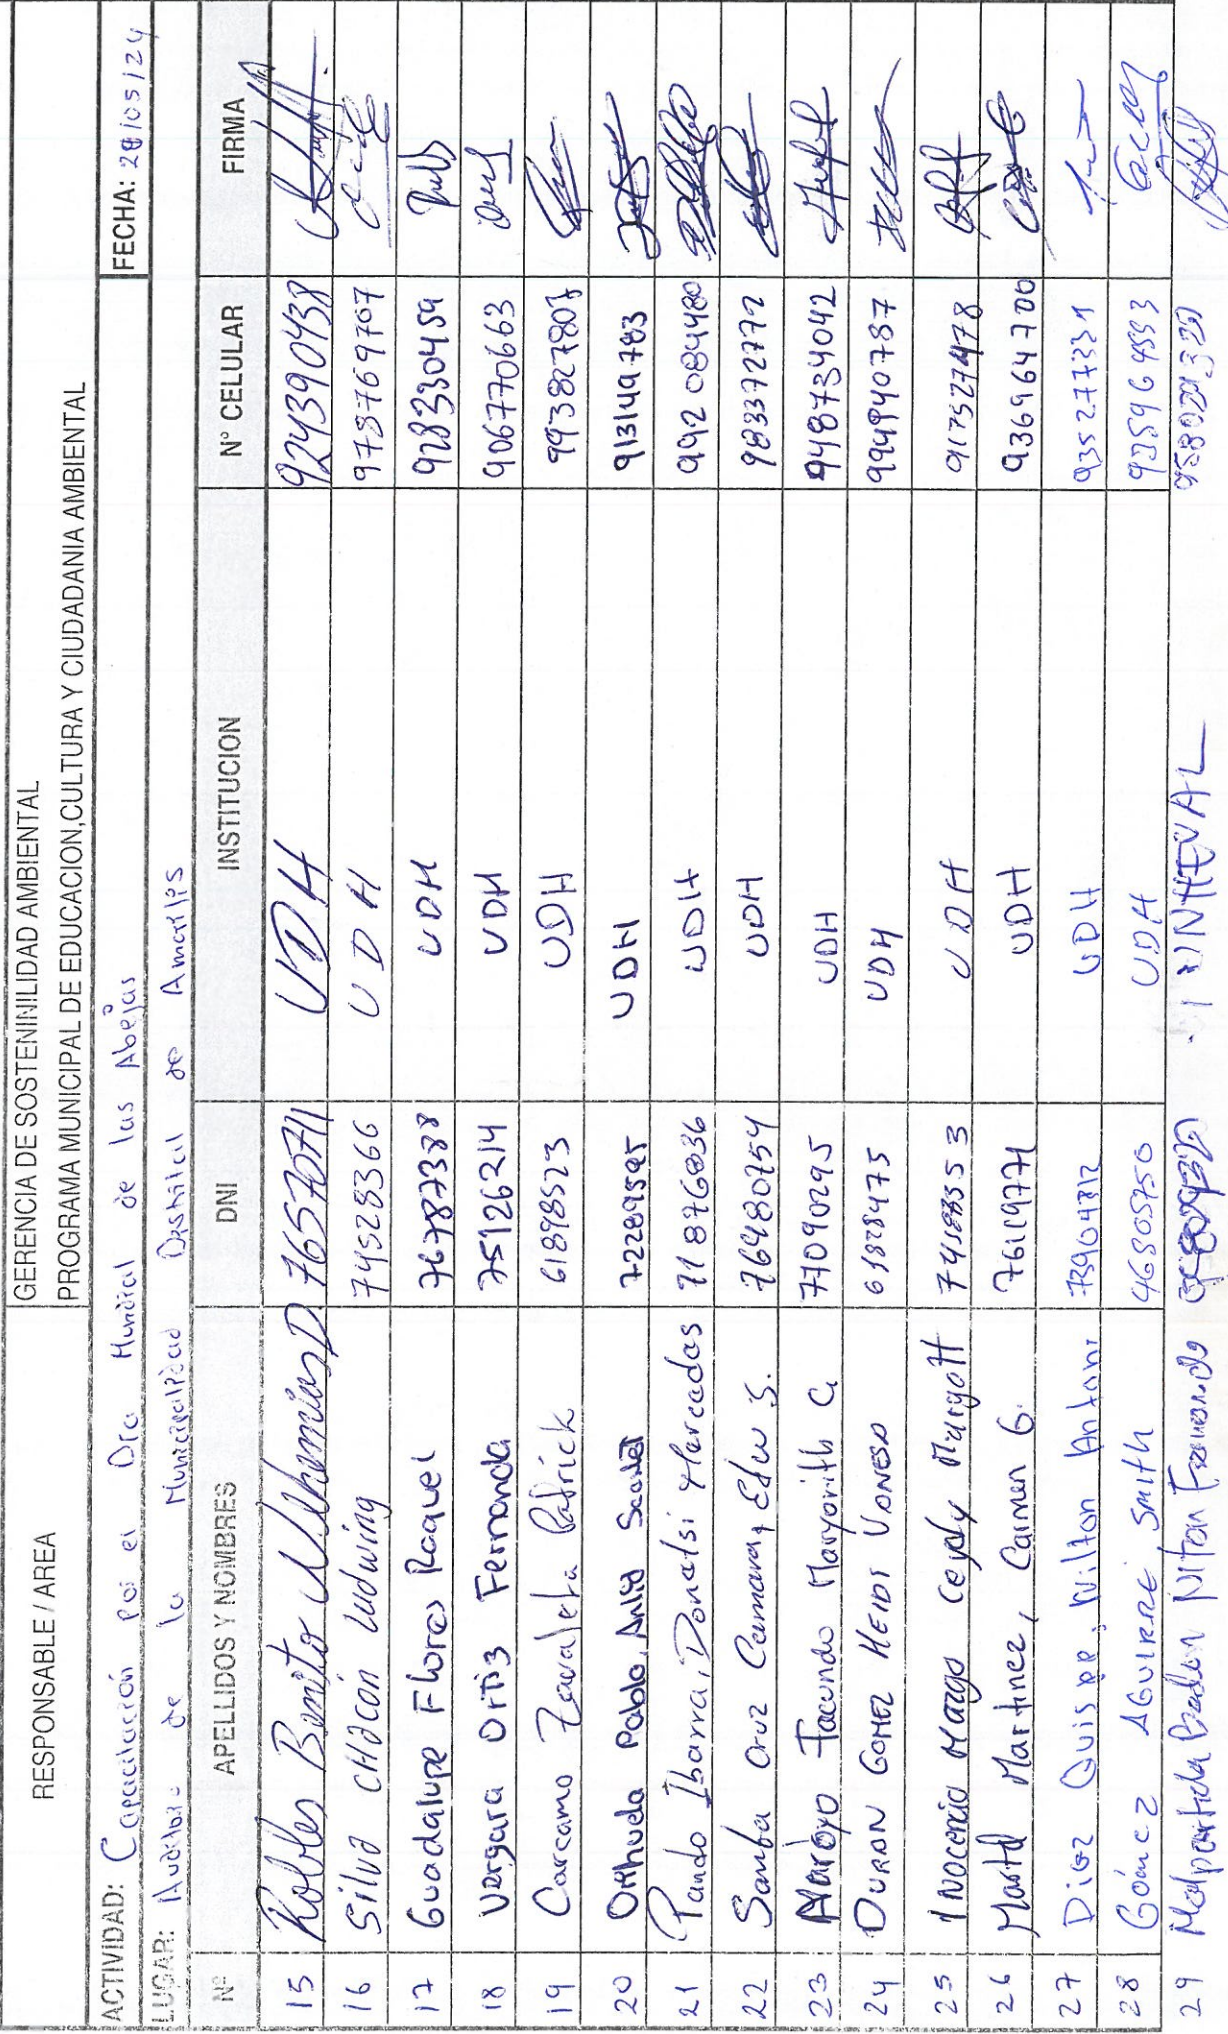 RESPONSABLE / AREA
GERENCIA DE SOSTENINILIDAD AMBIENTAL
PROGRAMA MUNICIPAL DE EDUCACION,CULTURA Y CIUDADANIA AMBIENTAL
ACTIVIDAD: Capacitación por el Día Mundial de las Abejas FECHA: 28/05/24
LUGAR: Auditorio de la Municipalidad Distrital de Amarilis
Nº APELLIDOS Y NOMBRES DNI INSTITUCION N° CELULAR FIRMA
15 Robles Benito Nhemias D 76570711 UDH 924390438
16 Silva CHacón Ludwing 74528366 UDH 978769767
17 Guadalupe Flores Raquel 76787388 UDH 928330459
18 Vergara Ortiz Fernanda 75126214 UDH 906770663
19 Carcamo Zavaleta Patrick 61898523 UDH 993827807
20 Orihuela Pablo, Anlid 72289595 UDH 913149783
21 Pando Ibarra, Donatsi Mercedes 71876836 UDH 992084480
22 Samba Cruz Camara, Edu S. 76480754 UDH 983372772
23 Facundo Maryorith C. 77090295 UDH 948734042
24 DURAN GOMEZ HEIDI 61828475 UDH 994940787
25 Inocencio Margo Ceydy Margott 74188553 UDH 917527478
26 Martel Martinez, Carmen G. 76119771 UDH 936964700
27 Diaz Quispe, Wilton Antoni 73904812 UDH 935277331
28 Gómez AGUIRRE SMITH 46805750 UDH 925964593
29 Malpartida Nilton Fernando UNHEVAL